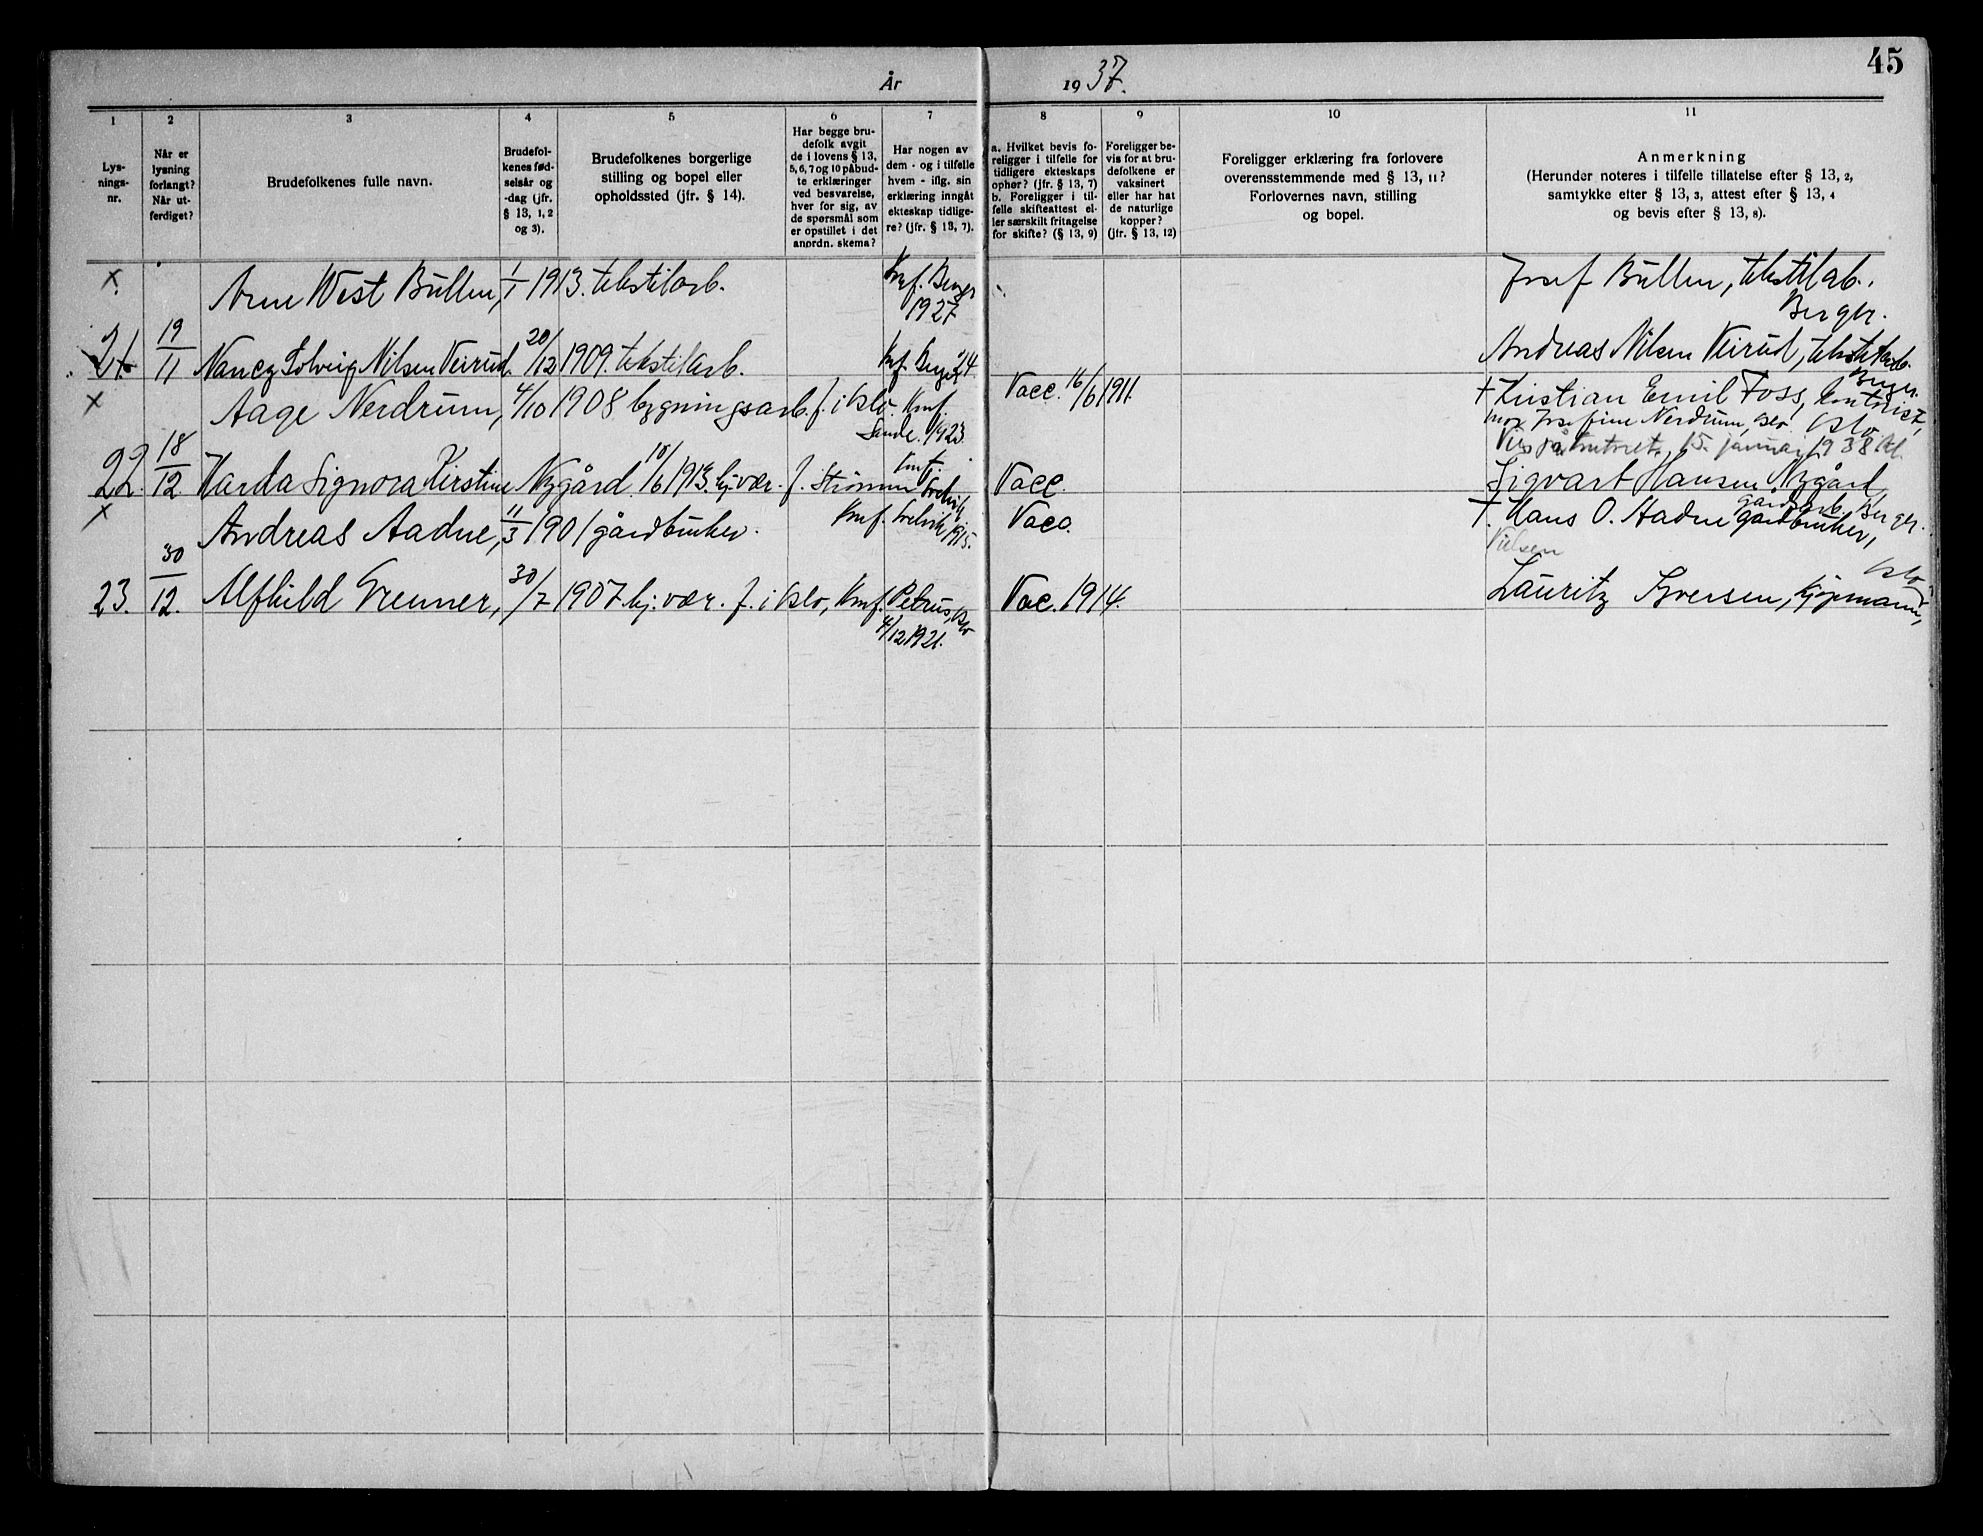 45
År 1937.
1 2 3 4 5 6 7 8 9 10 11
Lys-
nings-
nr.
Når er
lysning
forlangt?
Når ut-
ferdiget?
Brudefolkenes fulle navn.
Brudefol-
kenes fød-
selsår og
-dag (jfr.
§ 13, 1, 2
og 3).
Brudefolkenes borgerlige
stilling og bopel eller
opholdssted (jfr. § 14).
Har begge bru-
defolk avgit
de i lovens § 13,
5, 6, 7 og 10 påbud-
te erklæringer
ved besvarelse,
hver for sig, av
de spørsmål som
er opstillet i det
anordn. skema?
Har nogen av
dem - og i tilfelle
hvem - iflg. sin
erklæring inngåt
ekteskap tidlige-
re? (jfr. § 13, 7).
a. Hvilket bevis fo-
religger i tilfelle for
tidligere ekteskaps
ophør? (jfr. § 13, 7)
b. Foreligger i til-
felle skifteattest el-
ler særskilt fritagelse
for skifte? (§ 13, 9)
Foreligger be-
vis for at bru-
defolkene er
vaksinert
eller har hat
de naturlige
kopper?
(jfr. § 13, 12)
Foreligger erklæring fra forlovere
overensstemmende med § 13, 11?
Forlovernes navn, stilling
og bopel.
Anmerkning
(Herunder noteres i tilfelle tillatelse efter § 13, 2,
samtykke efter § 13, 3, attest efter § 13, 4
og bevis efter § 13, 8).
x Arne West Bullen, 1/1 1913. tekstilarb. Knf. Berger 1927 Josef Bullen, tekstilarb. Berger.
21 19/11 Nancy Solveig Nilsen Veirud. 20/12 1909. tekstilarb. Knf. Berger 24 Andreas Nilsen Veirud, tekstilarb. Berger.
x Aage Nerdrum, 4/10 1908 bygningsarb. f. i Oslo. Knf. Sande. 1923. Vacc. 16/6 1911. + Kristian Emil Foss, kontorist, Oslo
mor Josefine Nerdrum, Oslo.
15. januar 1938
22. 18/12 Harda Signora Kirstine Nygård. 18/6 1913. hj. vær. f. Strømm Knf. Svelvik Vacc. Sigvart Hansen Nygård gårdsarb. Berger.
x Andreas Aadne, 11/3 1901 gårdbruker. Knf. Svelvik, 1915. Vacc. +. Hans O. Aadne gårdbruker,
23. 30/12. Alfhild Grenner, 30/7 1907 hj. vær. f. i Oslo, Knf. Petrus, Oslo 4/12 1921. Vac. 1914. Lauritz Iversen, kjøpmann, Oslo